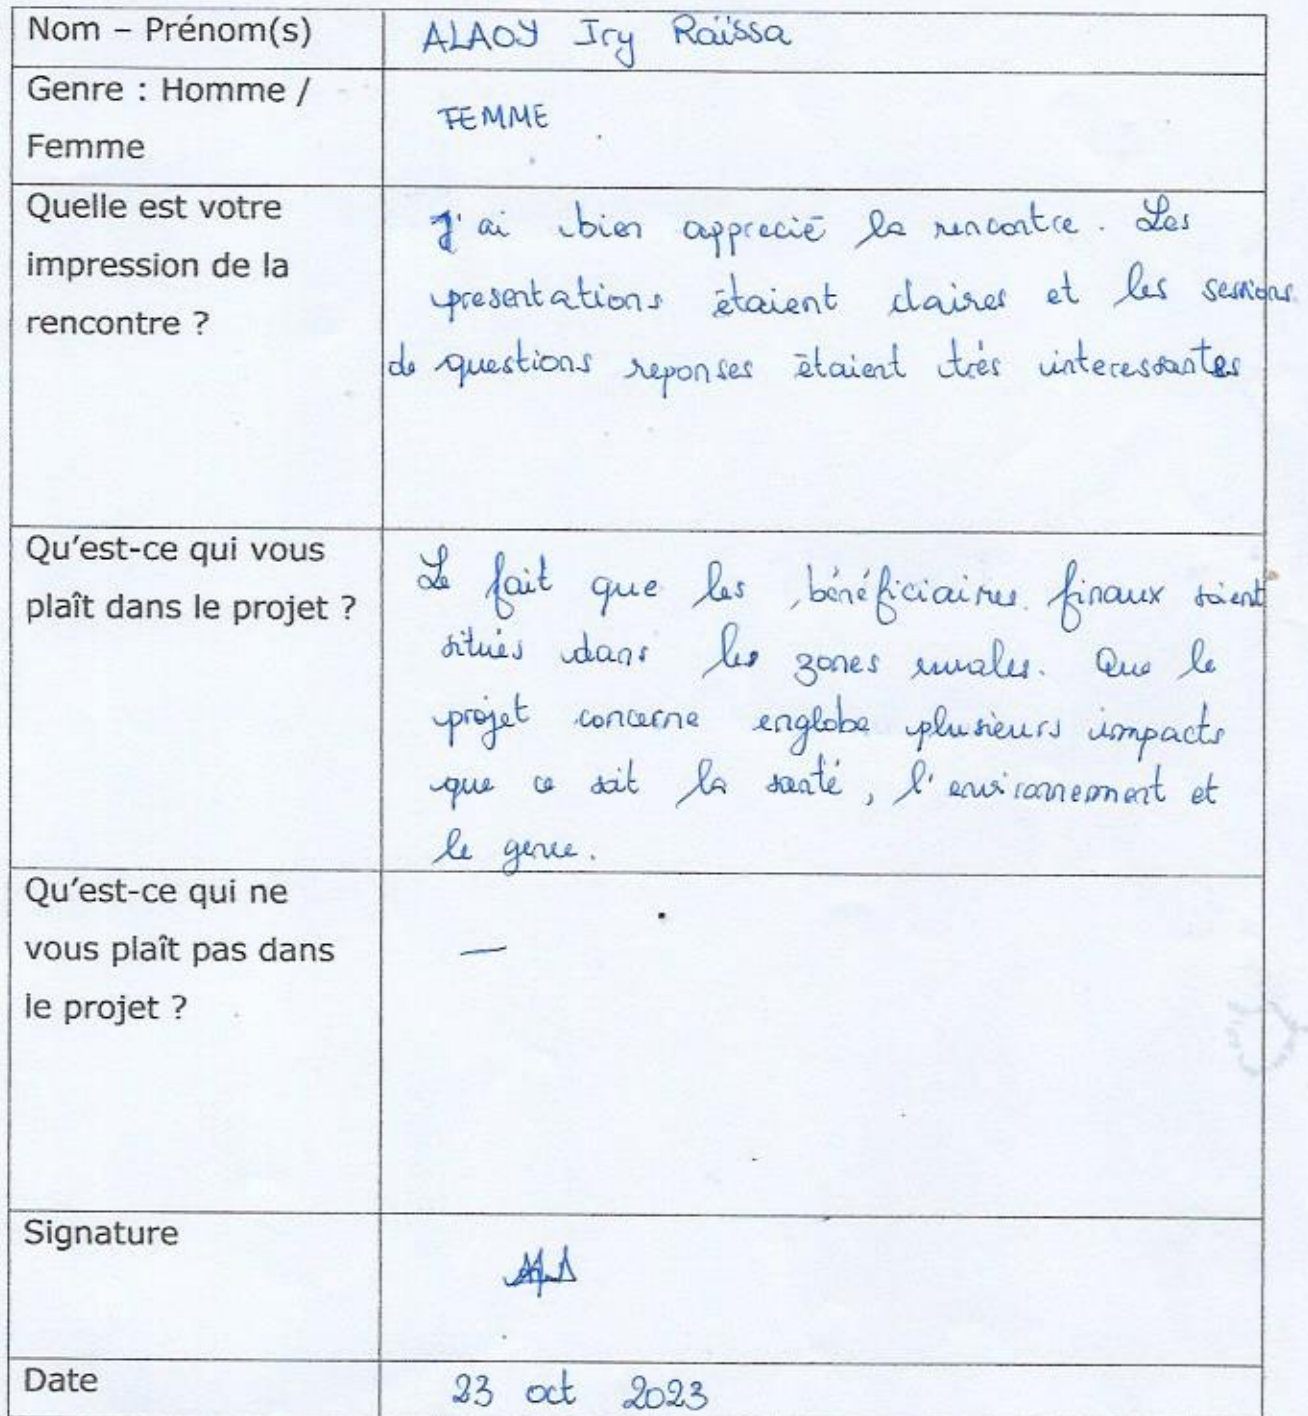 Nom – Prénom(s)
ALAOY Icy Raïssa
Genre : Homme /
Femme
FEMME
Quelle est votre
impression de la
rencontre ?
J'ai bien apprecié la rencontre. Les
presentations étaient claires et les sessions
de questions reponses étaient très interessantes
Qu'est-ce qui vous
plaît dans le projet ?
Le fait que les bénéficiaires finaux soient
situés dans les zones rurales. Que le
projet concerne englobe plusieurs impacts
que ce soit la santé, l'environnement et
le genre.
Qu'est-ce qui ne
vous plaît pas dans
le projet ?
—
Signature
Date
23 oct 2023